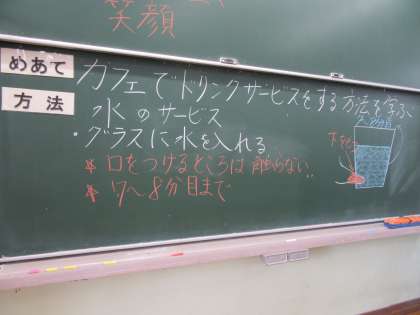 笑顔
めあて
カフェでドリンクサービスをする方法を学ぶ
方法
水のサービス
・グラスに水を入れる
＊口をつけるところは触らない。
＊7〜8分目まで